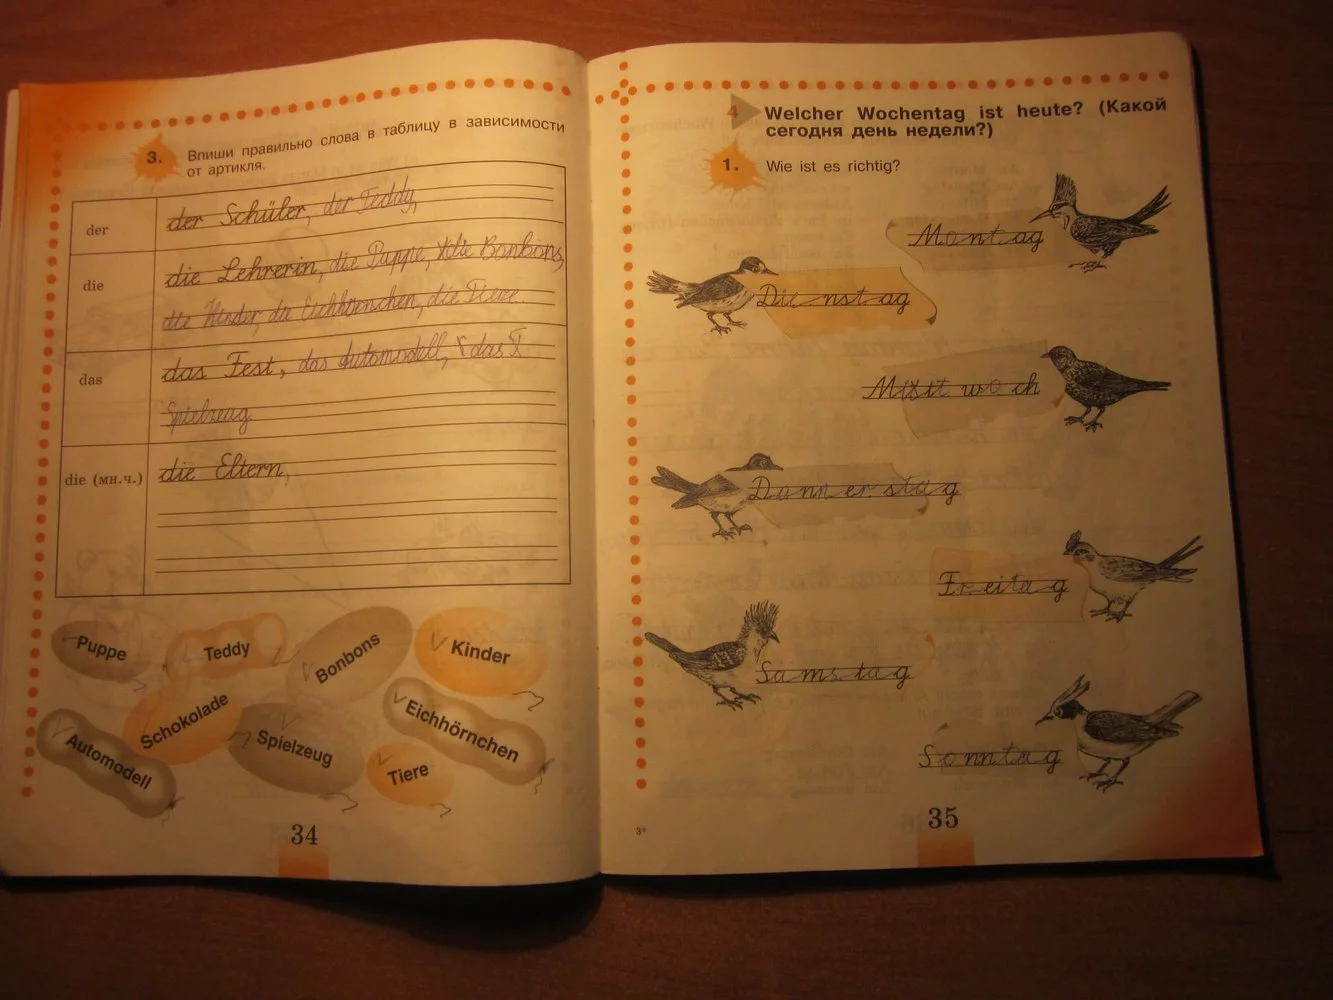 3.
Впиши правильно слова в таблицу в зависимости
от артикля.
der
der Schüler, der Teddy,
die
die Lehrerin, die Puppe, die Bonbons,
die Kinder, die Eichhörnchen, die Tiere.
das
das Fest, das Automodell, das
Spielzeug
die (мн.ч.)
die Eltern,
Puppe
Teddy
Bonbons
Kinder
Automodell
Schokolade
Spielzeug
Eichhörnchen
Tiere
34
4
Welcher Wochentag ist heute? (Какой
сегодня день недели?)
1.
Wie ist es richtig?
Montag
Dienstag
Mittwoch
Donnerstag
Freitag
Samstag
Sonntag
3*
35